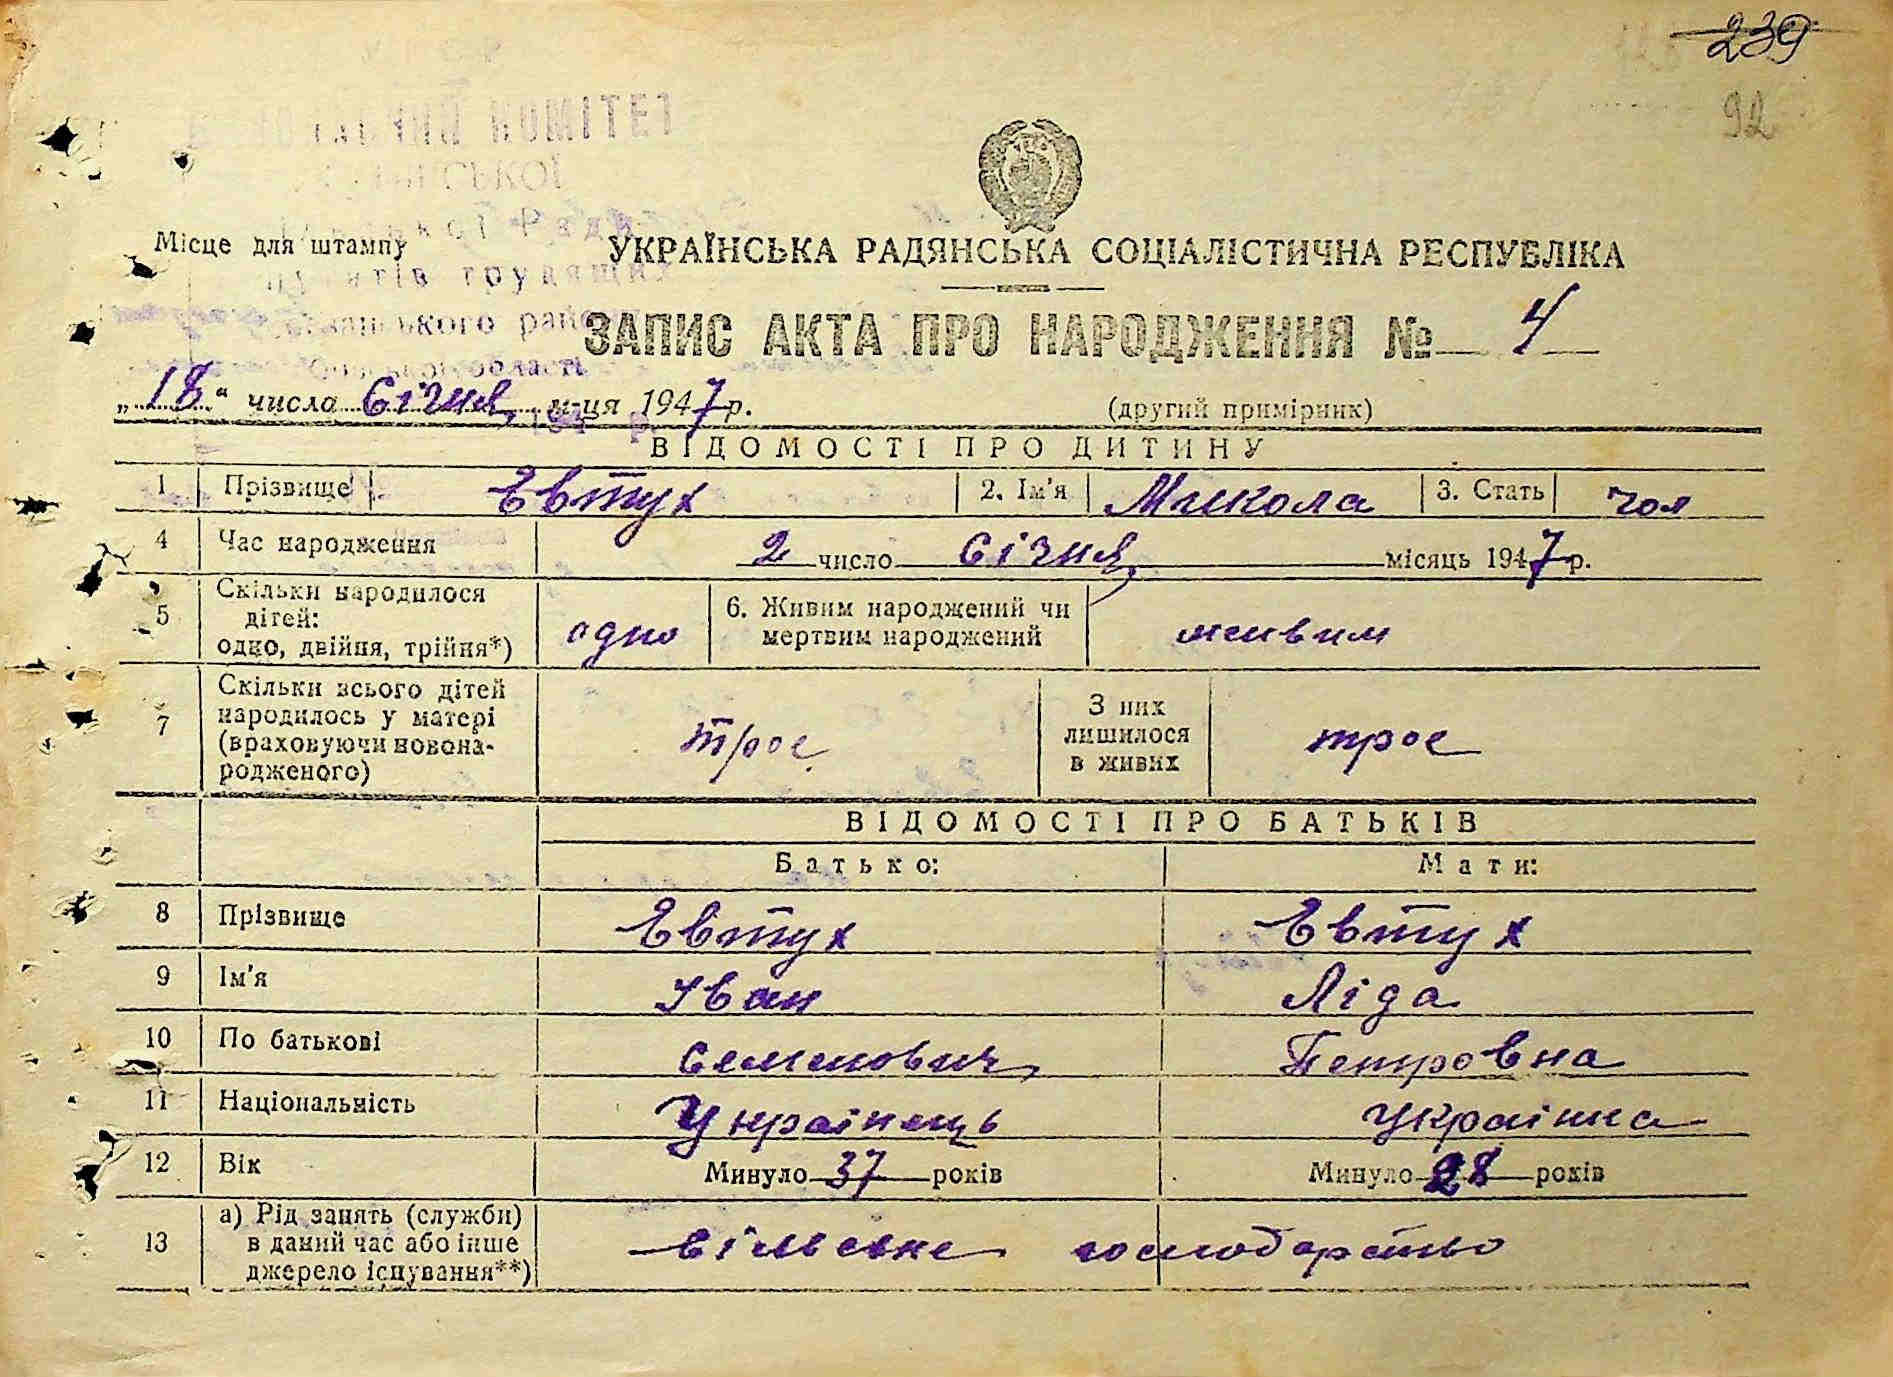 239
92
КОМІТЕТ
Місце для штампу
УКРАЇНСЬКА РАДЯНСЬКА СОЦІАЛІСТИЧНА РЕСПУБЛІКА
ЗАПИС АКТА ПРО НАРОДЖЕННЯ № 4
„18“ числа Січня м-ця 1947 р.
(другий примірник)
ВІДОМОСТІ ПРО ДИТИНУ
1 Прізвище Євтух 2. Ім'я Микола 3. Стать чол
4 Час народження 2 число Січня місяць 1947 р.
5 Скільки народилося дітей: одно, двійня, трійня*) одно 6. Живим народжений чи мертвим народжений живим
7 Скільки всього дітей народилось у матері (враховуючи новона-родженого) троє З них лишилося в живих троє
ВІДОМОСТІ ПРО БАТЬКІВ
Батько: Мати:
8 Прізвище Євтух Євтух
9 Ім'я Іван Ліда
10 По батькові Семенович Петровна
11 Національність Українець Українка
12 Вік Минуло 37 років Минуло 28 років
13 а) Рід занять (служби) в даний час або інше джерело існування**) сільське господарство